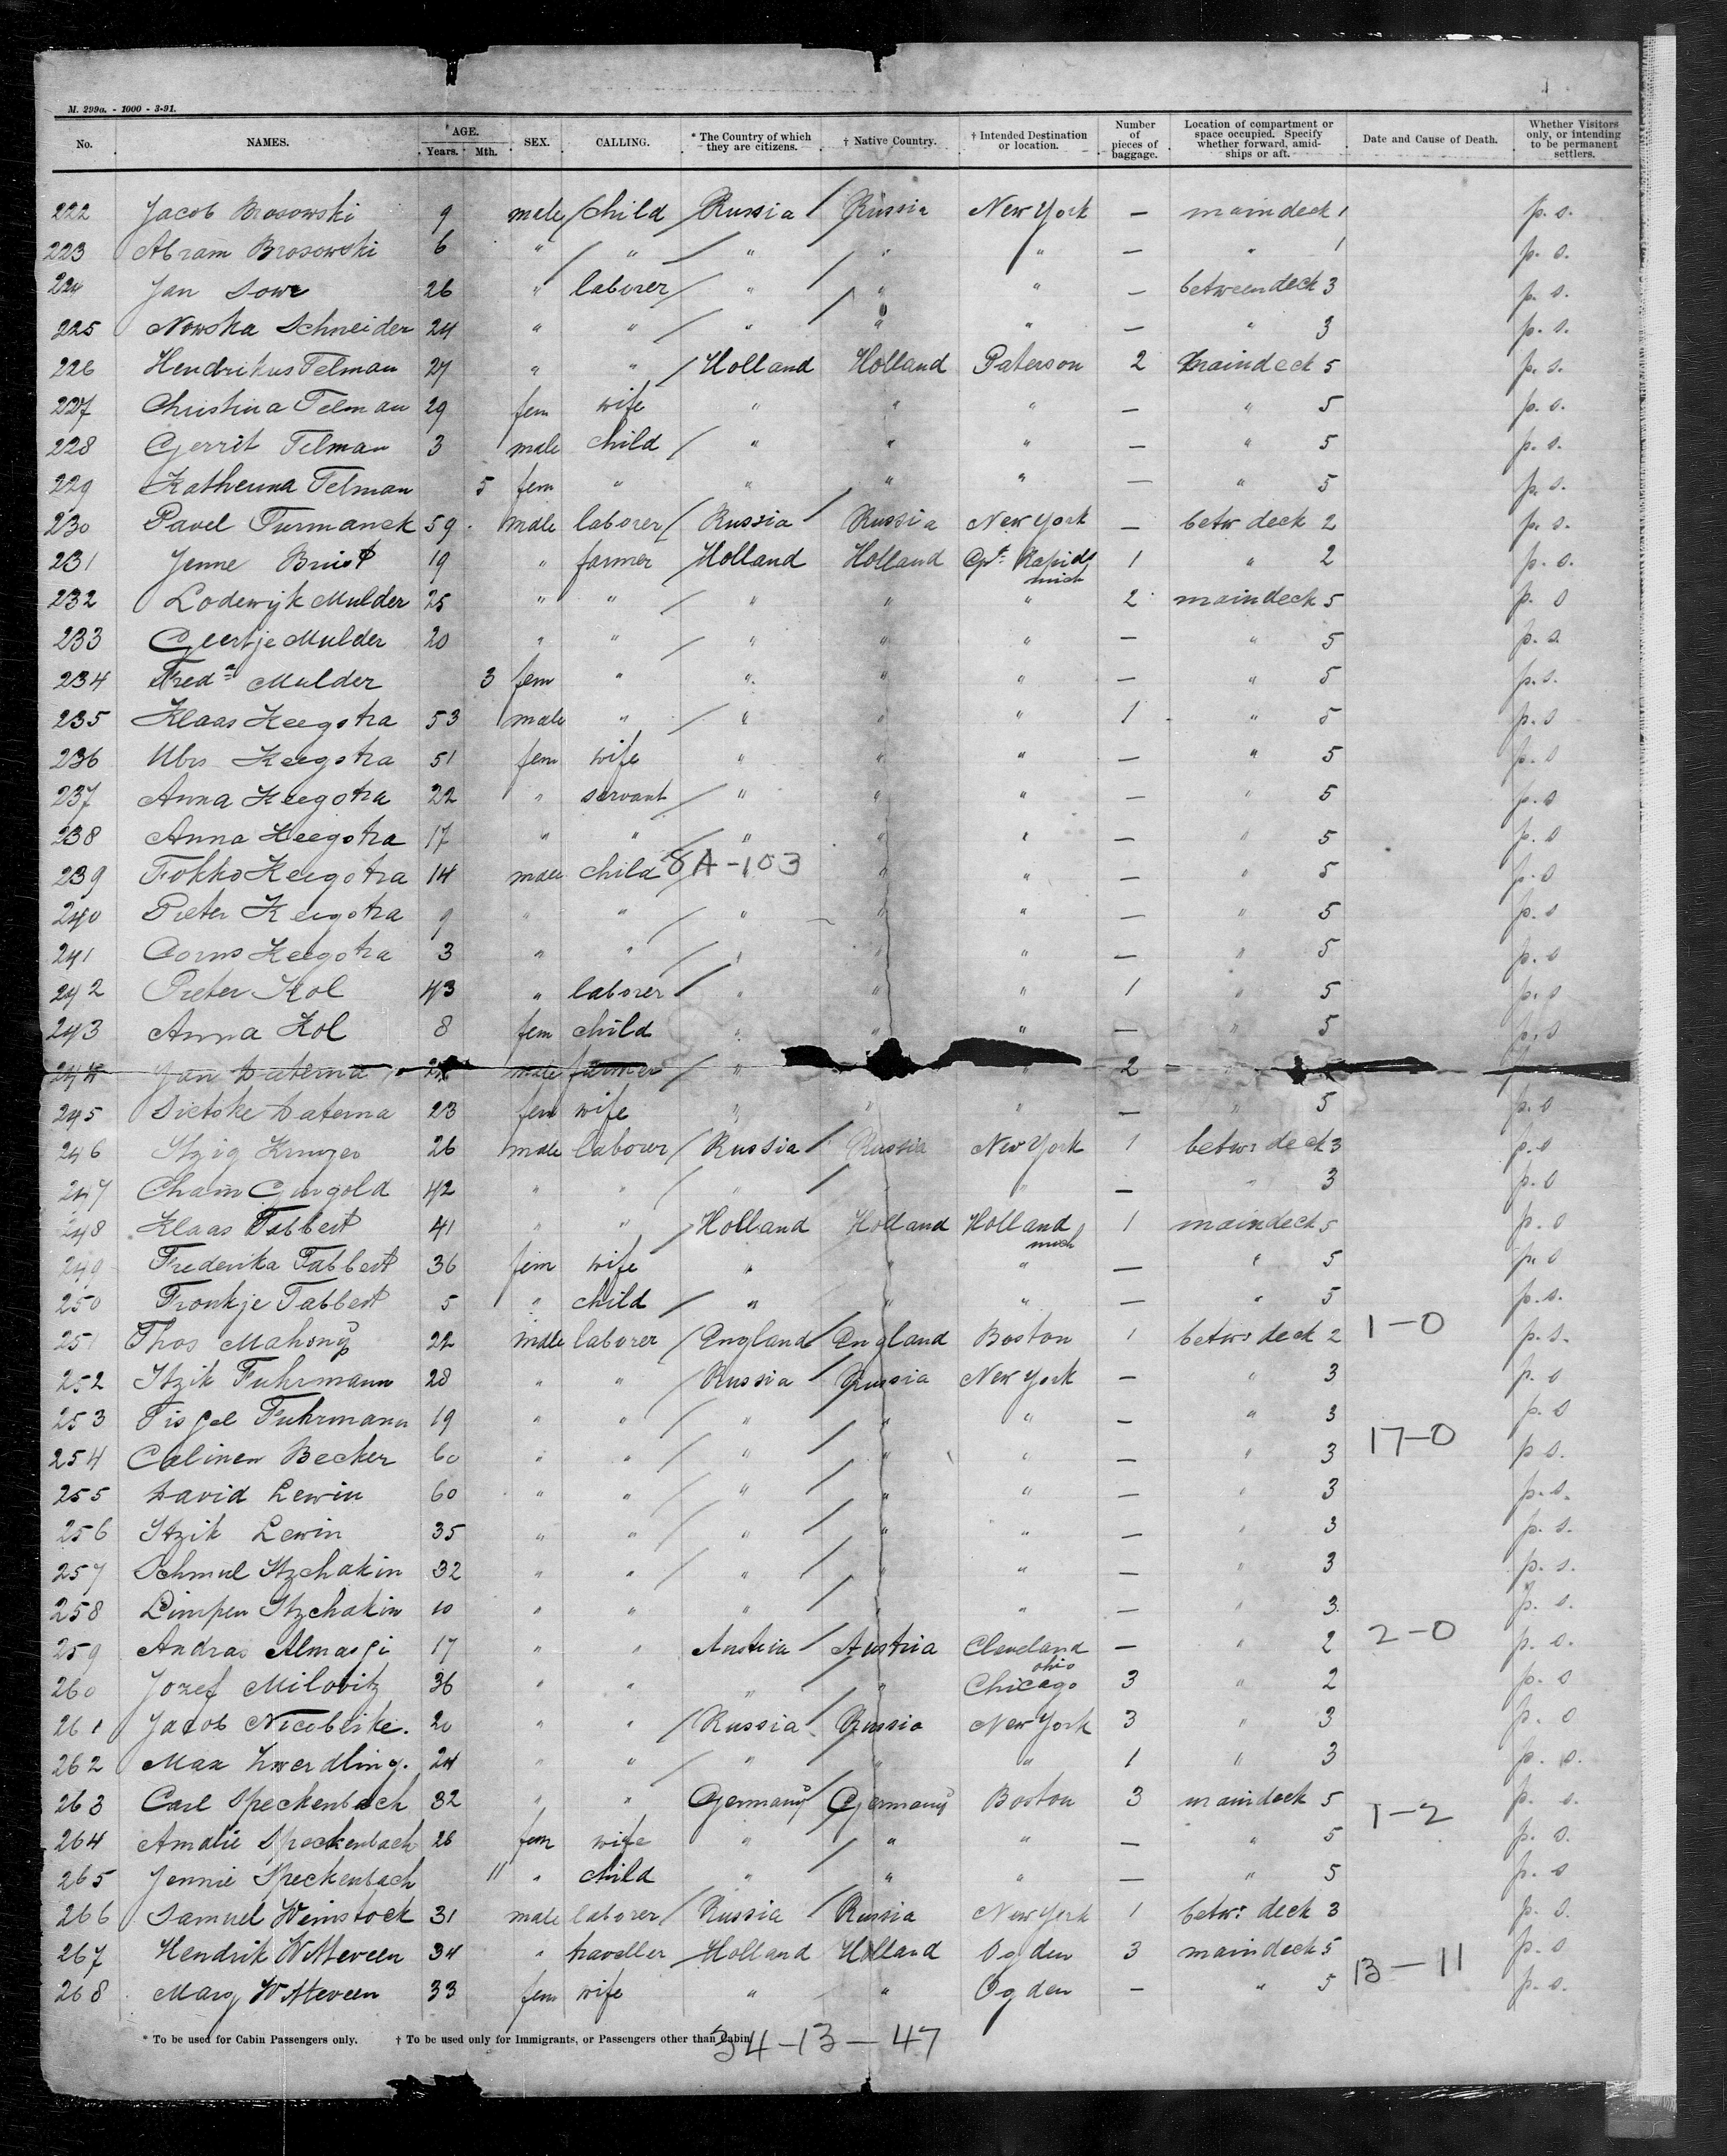 M. 299a. - 1000 - 3-91.
No. NAMES. * AGE. Years. Mth. SEX. CALLING. * The Country of which they are citizens. † Native Country. † Intended Destination or location. Number of pieces of baggage. Location of compartment or space occupied. Specify whether forward, amidships or aft. Date and Cause of Death. Whether Visitors only, or intending to be permanent settlers.
222 Jacob Brosowski 9 male child Russia Russia New York — maindeck 1 p. s.
223 Abram Brosowski 6 " " " " " — " 1 p. s.
224 Jan 26 " laborer " " " — betweendeck 3 p. s.
225 Nowska Schneider 24 " " " " " — " 3 p. s.
226 Hendrikus Telman 27 " " Holland Holland Paterson 2 maindeck 5 p. s.
227 Christina Telman 29 fem wife " " " — " 5 p. s.
228 Gerrit Telman 3 male child " " " — " 5 p. s.
229 Katherina Telman 5 fem " " " " — " 5 p. s.
230 Pavel Turmanek 59 male laborer Russia Russia New York — betw deck 2 p. s.
231 Jenne 19 " farmer Holland Holland Rapids mich 1 " 2 p. s.
232 Lodewijk Mulder 25 " " " " " 2 maindeck 5 p. s
233 Geertje Mulder 20 " " " " " — " 5 p. s.
234 Fred^a Mulder 3 fem " " " " — " 5 p. s.
235 Klaas Keegstra 53 male " " " " 1 " 5 p. s
236 Keegstra 51 fem wife " " " — " 5 p. s
237 Anna Keegstra 22 " servant " " " — " 5 p. s
238 Anna Keegstra 17 " " " " " — " 5 p. s
239 Fokko Keegstra 14 male child 8A-103 " " — " 5 p. s
240 Pieter Keegstra 9 " " " " " — " 5 p. s
241 Keegstra 3 " " " " " — " 5 p. s
242 Pieter Kol 43 " laborer " " " 1 " 5 p. s
243 Anna Kol 8 fem child " " " — " 5 p. s
244 Jan male farmer " " 2
245 Sietske 23 fem wife " " " — " 5 p. s
246 Itzig 26 male laborer Russia Russia New York 1 betw: deck 3 p. s
247 Chaim Gurgold 42 " " " " — " 3 p. s
248 Klaas Tabbert 41 " " Holland Holland Holland mich 1 maindeck 5 p. s
249 Frederika Tabbert 36 fem wife " " " — " 5 p. s
250 Froukje Tabbert 5 " child " " " — " 5 p. s.
251 Thos Mahony 22 male laborer England England Boston 1 betw: deck 2 1-0 p. s.
252 Itzik Fuhrmann 28 " " Russia Russia New York — " 3 p. s
253 Fuhrmann 19 " " " " " — " 3 p. s
254 Becker 60 " " " " " — " 3 17-0 p s.
255 David Lewin 60 " " " " " — " 3 p. s.
256 Itzik Lewin 35 " " " " " — " 3 p. s.
257 Schmul Itzchakin 32 " " " " " — " 3 p. s.
258 Itzchakin 10 " " " " " — " 3. p. s.
259 Andras Almasgi 17 " " Austria Austria Cleveland ohio — " 2 2-0 p. s.
260 Jozef Milovitz 36 " " " " Chicago 3 " 2 p. s
261 Jacob 20 " " Russia Russia New York 3 " 3 p. s
262 Max Zwerdling. 24 " " " " " 1 " 3 p. s.
263 Carl Speckenbach 32 " " Germany Germany Boston 3 maindeck 5 1-2 p. s.
264 Amalie Speckenbach 26 fem wife " " " — " 5 p. s.
265 Jennie Speckenbach 11 " child " " " — " 5 p. s
266 Samuel Weinstock 31 male laborer Russia Russia New York 1 betw: deck 3 p. s.
267 Hendrik Witteveen 34 " traveller Holland Holland Ogden 3 maindeck 5 13-11 p. s
268 Mary Witteveen 33 fem wife " " Ogden — " 5 p. s.
* To be used for Cabin Passengers only. † To be used only for Immigrants, or Passengers other than Cabin.
34-13-47